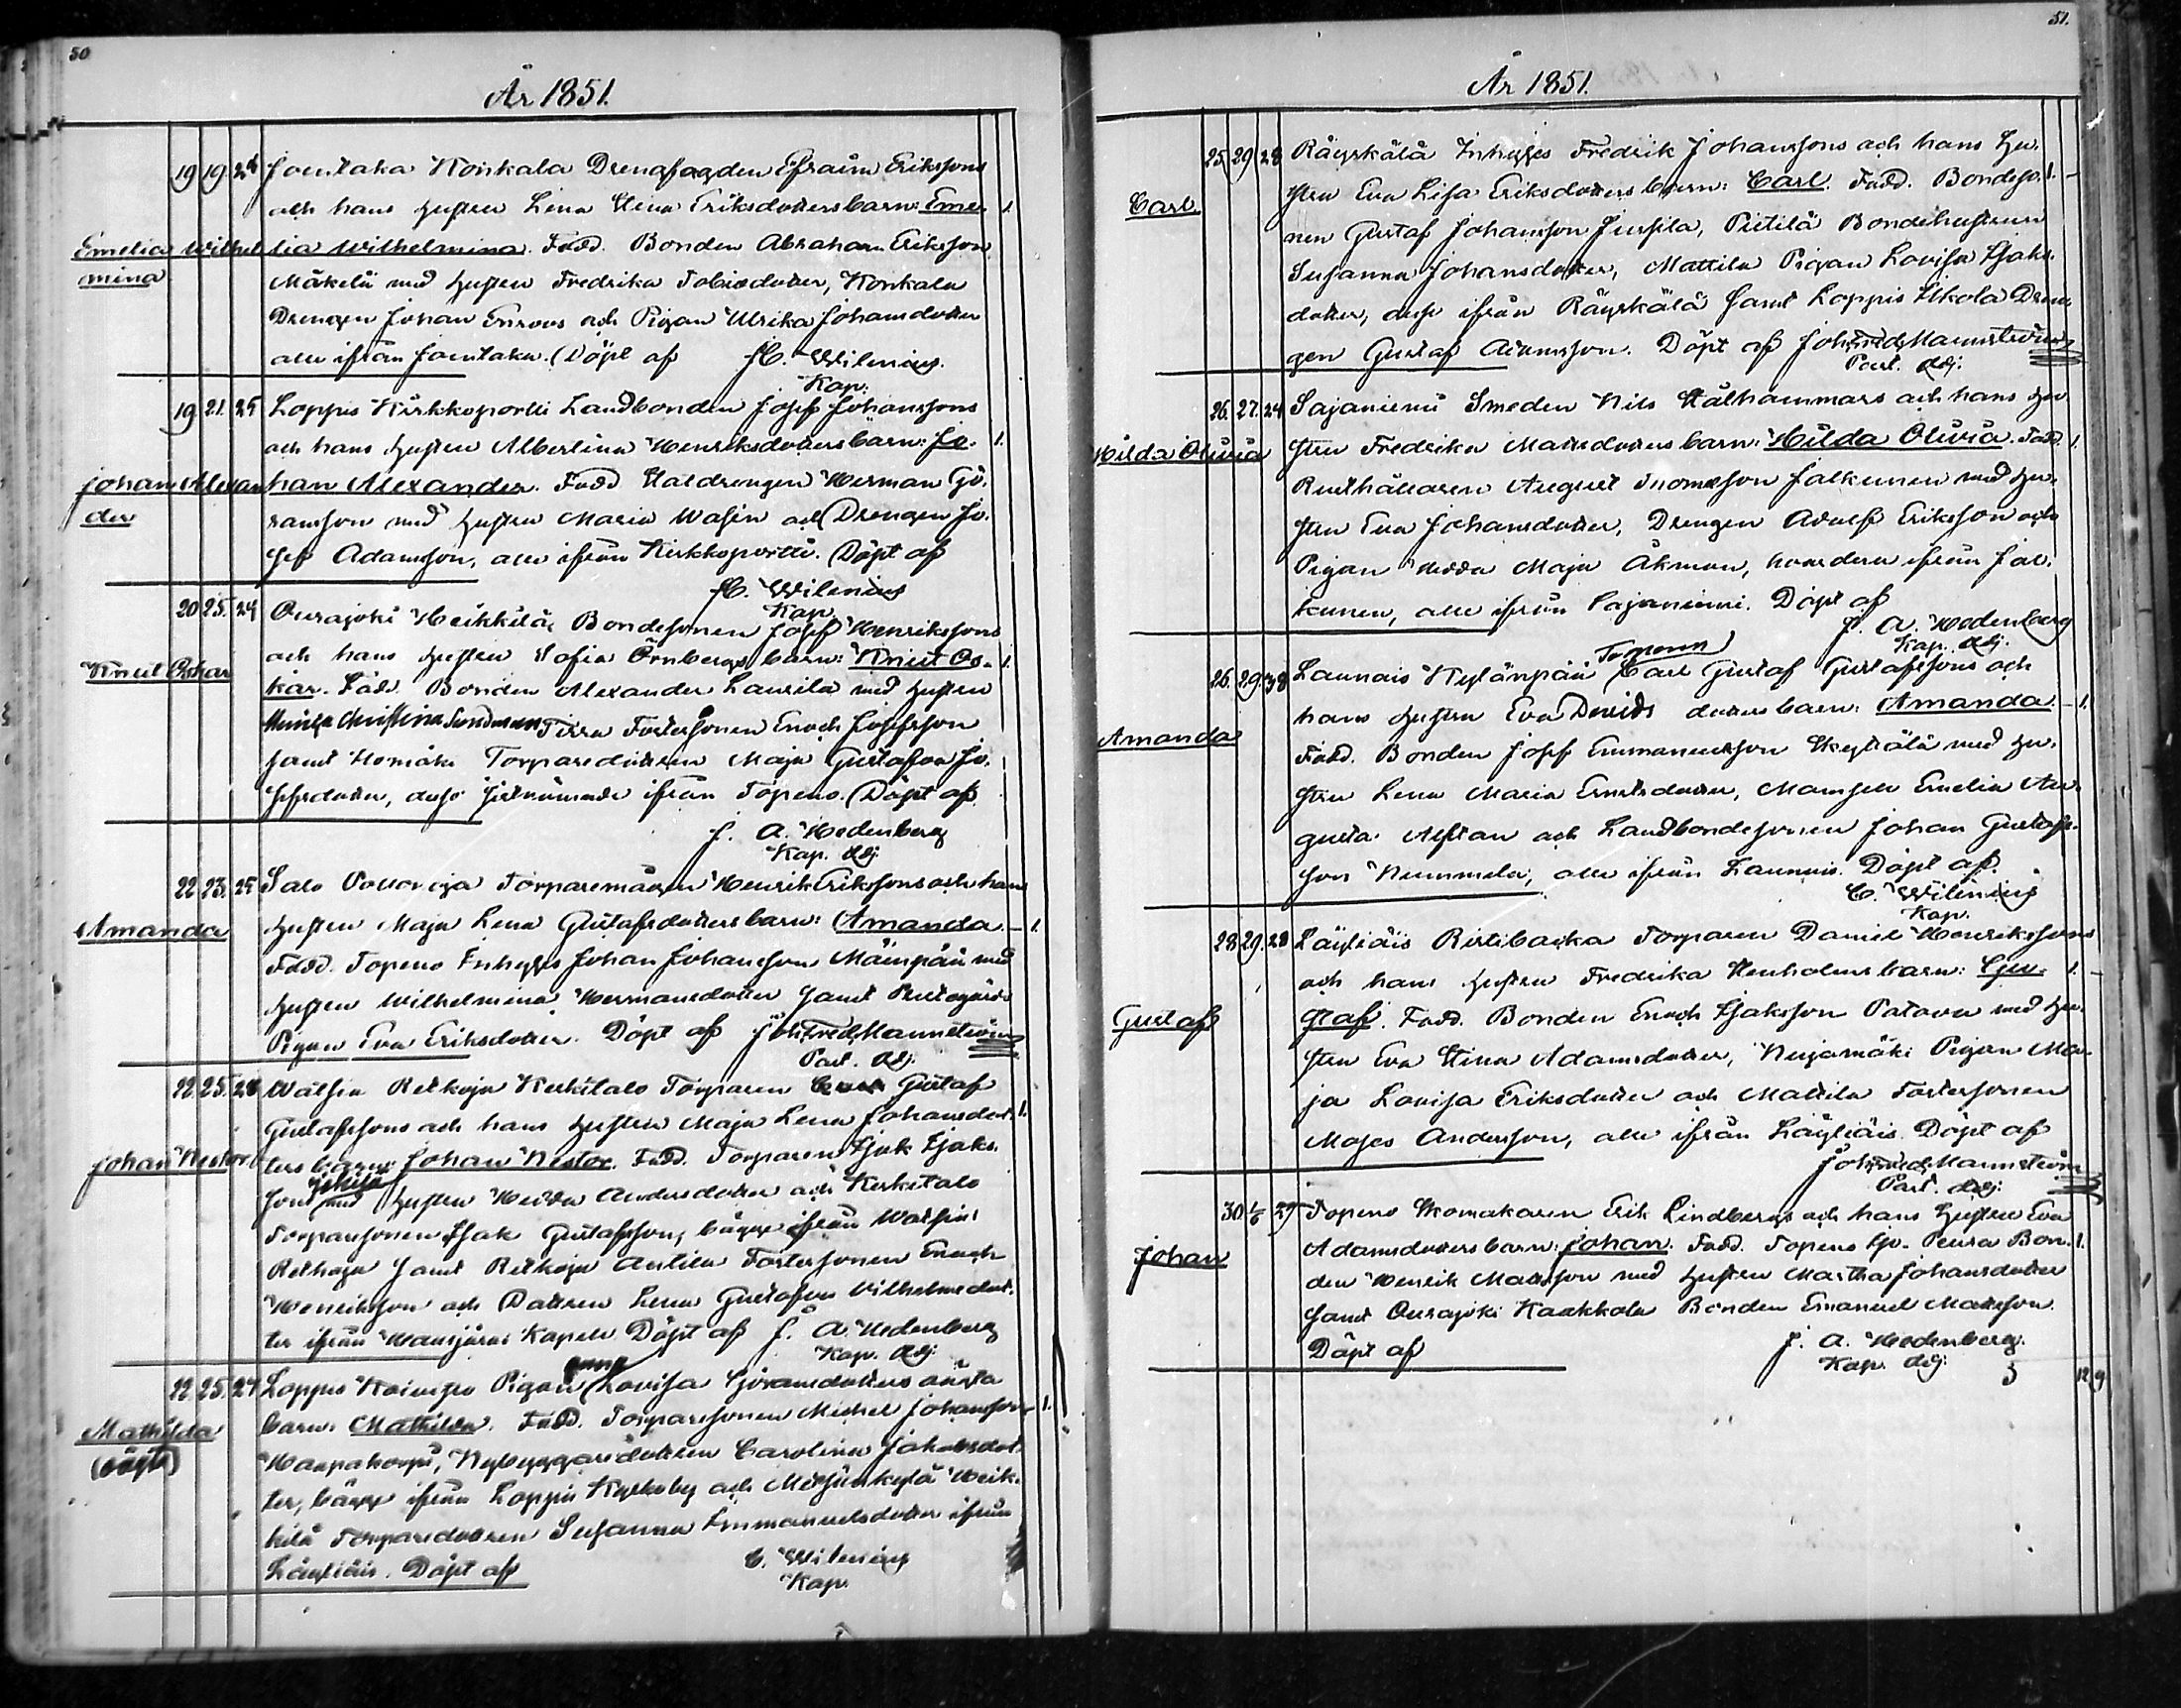 50
År 1851.
19 19. 24 Joentaka Konkala Drengfogden Efraim Erikssons
och hans hustru Lena Stina Eriksdotters barn: Eme-
Emelia Wilhel- lia Wilhelmina. Fadd. Bonden Abraham Eriksson 1.
mina
Mäkelä med hustru Fredrika Tobiedotter, Konkala
Drengen Johan Enroos och Pigan Ulrika Johansdotter
alle ifrån Joentaka. Döpt af C. Wilenius.
Kap.
19 21. 25 Loppis Kirkkoportti Landbonden Josef Johanssons
och hans hustru Albertina Henriksdotters barn: Jo- 1.
Johan Alexan- han Alexander. Fadd Statdrengen Herman Gö-
der
ransson med hustru Maria Wasin och Drengen Jo-
sef Adamsson, alle ifrån Kirkkoportti. Döpt af
C. Wilenius
Kap.
20 25. 24 Ourajoki Heikkilä Bondesonen Josef Henrikssons
och hans hustru Sofia Örnbergs barn: Knut Os- 1.
Knut Oskar
kar. Fadd. Bonden Alexander Laurila med hustru
Christina Sundman, Tirra Fostersonen Enoch Josefsson
samt Homäki Torparedottren Maja Gustafva Jo-
sefsdotter, desse sistnämnde ifrån Topeno. Döpt af
J. A. Hedenberg
Kap. Adj.
22 23. 25 Salo Torparemågen Henrik Erikssons och hans
Amanda
hustru Maja Lena Gustafsdotters barn: Amanda — 1.
Fadd. Topeno Inhyses Johan Johansson Mäenpää med
hustru Wilhelmina Hermansdotter samt
Pigan Eva Eriksdotter. Döpt af Joh Fred Mannström
Past. Adj.
22 25. 26 Retkoja Kerkitalo Torparen Gustaf
Gustafssons och hans hustru Maja Lena Johansdot- 1.
Johan Nestor
ters barn: Johan Nestor. Fadd. Torparen Isak Isaks-
son med hustru Hedda Andersdotter och Kerkitalo
Torparesonen Isak Gustafsson, bägge ifrån
Retkoja samt Retkoja Antila Fostersonen Enoch
Henriksson och Dottren Lena Gustafva Wilhelmsdot-
ter ifrån Hausjärvi Kapell. Döpt af J. A. Hedenberg
Kap. Adj.
22 25. 27 Loppis Pigan Lovisa Göransdotters oägta
barn: Mathilda. Fadd. Torparesonen Michel Johansson 1.
Mathilda
(oägta)
Haapakorpi, Nybyggaredottren Carolina Jakobsdot-
ter, bägge ifrån Loppis Kyrkoby och Heik-
kilä Torparedottren Susanna Emmanuelsdotter ifrån
Läyliäis. Döpt af C. Wilenius
Kap.
51.
År 1851.
25. 29 28 Räyskälä Inhyses Fredrik Johanssons och hans hu-
Carl
stru Eva Lisa Eriksdotters barn: Carl. Fadd. Bondeso- 1.
nen Gustaf Johansson Jussila, Pietilä Bondehustrun
Susanna Johansdotter, Mattila Pigan Lovisa Isaks-
dotter, desse ifrån Räyskälä samt Loppis Ilkola Dren-
gen Gustaf Adamsson. Döpt af Joh Fred Mannström
Past. Adj.
26. 27. 24 Sajaniemi Smeden Nils Stålhammars och hans hu-
Hilda Olivia
stru Fredrika Mattsdotters barn: Hilda Olivia. Fadd. 1.
Rusthållaren August Thomasson Jalkunen med hu-
stru Eva Johansdotter, Drengen Adolf Eriksson och
Pigan Hedda Maja Åkman, ifrån Jal-
kunen, alle ifrån Sajaniemi. Döpt af
J. A. Hedenberg
Kap. Adj.
Torparen
26. 29. 38 Launais Kylänpää Carl Gustaf Gustafssons och
Amanda
hans hustru Eva Davidsdotters barn: Amanda — 1.
Fadd. Bonden Josef Emmanuelsson Kylälä med hu-
stru Lena Maria Ernstsdotter, Mamsell Emelia Au-
gusta och Landbondesonen Johan Gustafs-
son Nummela, alle ifrån Launais. Döpt af
C. Wilenius
Kap.
28 29. 28 Läyliäis Ristibacka Torparen Daniel Henrikssons
och hans hustru Fredrika Stenholms barn: Gu- 1.
Gustaf
staf. Fadd. Bonden Enoch Isaksson Patava med hu-
stru Eva Stina Adamsdotter, Nujamäki Pigan Ma-
ja Lovisa Eriksdotter och Mattila Fostersonen
Moses Andersson, alle ifrån Läyliäis. Döpt af
Joh Fred Mannström
Past. Adj.
30 1/6 29 Topeno Skomakaren Erik Lindbergs och hans hustru Eva
Johan
Adamsdotters barn: Johan. Fadd. Topeno Peura Bon- 1.
den Henrik Mattsson med hustru Martha Johansdotter
samt Ourajoki Kaakkola Bonden Emanuel Mattsson.
Döpt af J. A. Hedenberg.
Kap. Adj.
3 12 9